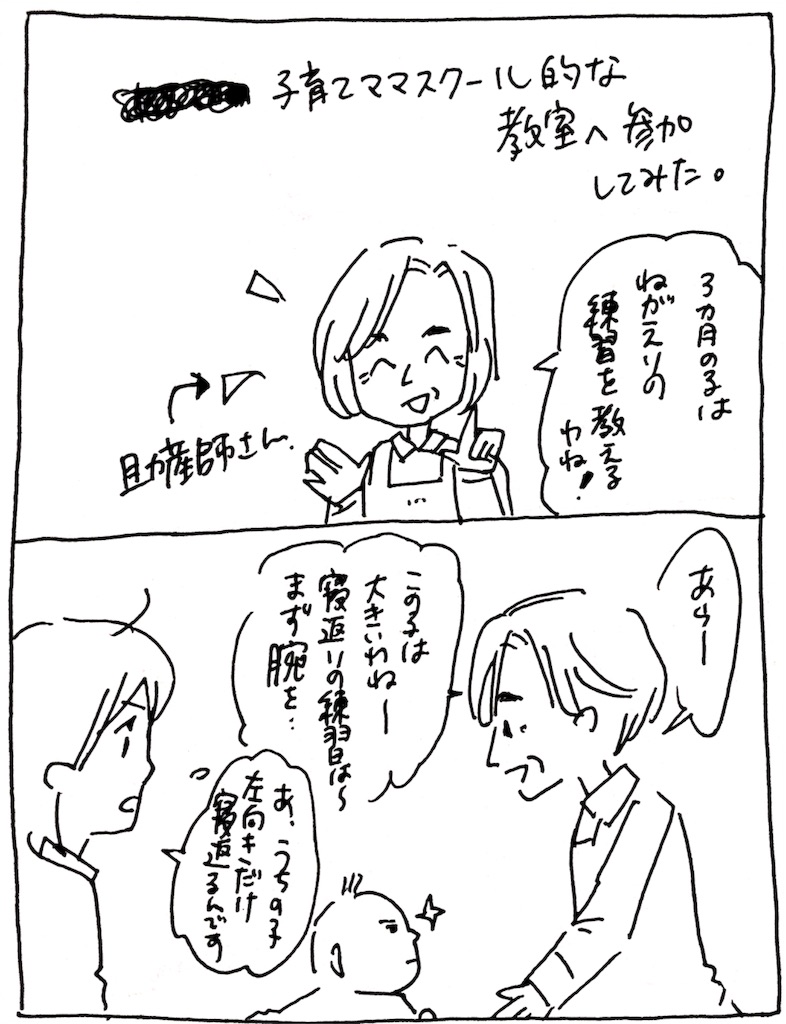 子育てママスクール的な
教室へ参加
してみた。
3カ月の子は
ねがえりの
練習を教える
わね！
助産師さん
あらー
この子は
大きいわねー
寝返りの練習は〜
まず腕を…
あ、うちの子
左向きだけ
寝返るんです